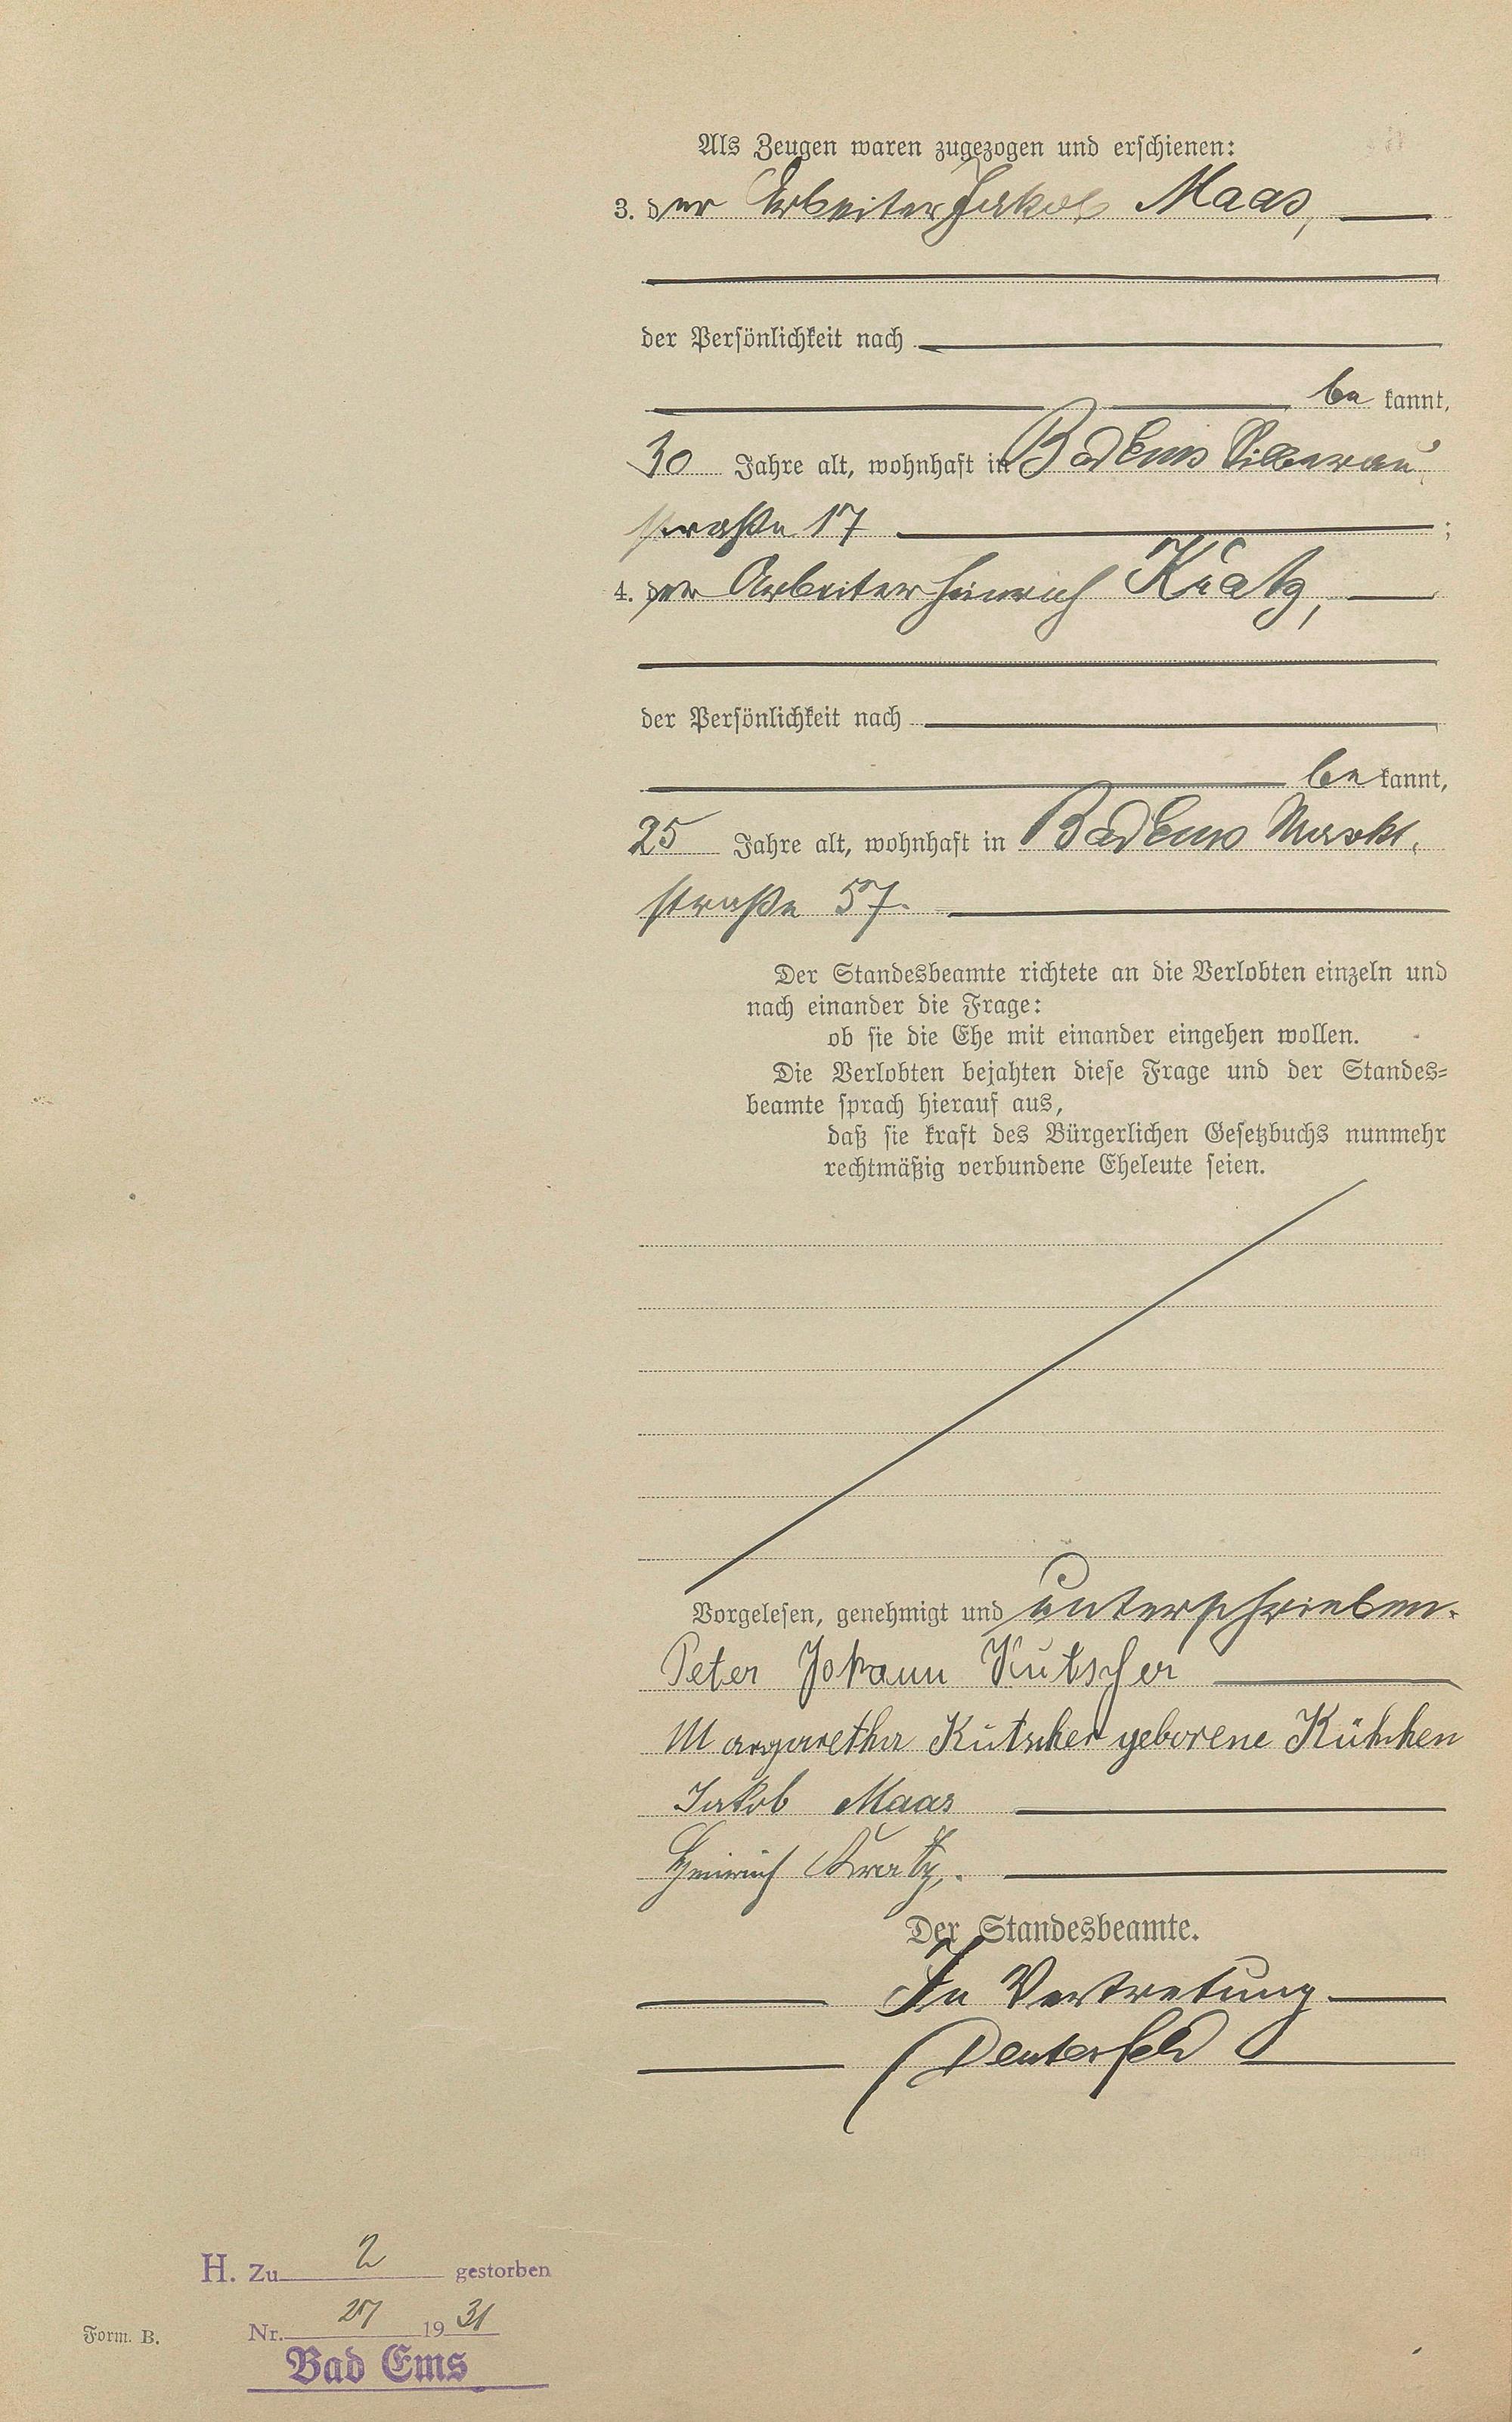 Als Zeugen waren zugezogen und erschienen:
3. der Arbeiter Jakob Maas,
der Persönlichkeit nach
be kannt,
30 Jahre alt, wohnhaft in Bad Ems Silberau,
straße 17 ;
4. der Arbeiter Heinrich Kratz,
der Persönlichkeit nach
be kannt,
25 Jahre alt, wohnhaft in Bad Ems Markt,
straße 57.
Der Standesbeamte richtete an die Verlobten einzeln und
nach einander die Frage:
ob sie die Ehe mit einander eingehen wollen.
Die Verlobten bejahten diese Frage und der Standes-
beamte sprach hierauf aus,
daß sie kraft des Bürgerlichen Gesetzbuchs nunmehr
rechtmäßig verbundene Eheleute seien.
Vorgelesen, genehmigt und unterschrieben.
Peter Johann Kutscher
Margaretha Kutscher geborene Kühchen
Jakob Maas
Heinrich Kratz.
Der Standesbeamte.
In Vertretung
H. Zu 2 gestorben
Nr. 27 1931
Form. B.
Bad Ems